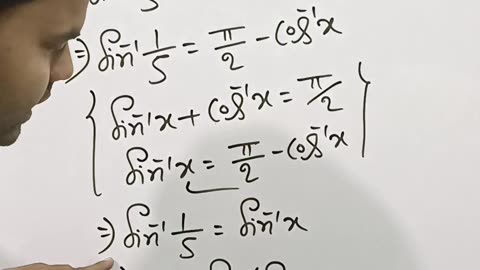 ⇒ sin⁻¹ 1/5 = π/2 − cos⁻¹x
{ sin⁻¹x + cos⁻¹x = π/2
sin⁻¹x = π/2 − cos⁻¹x }
⇒ sin⁻¹ 1/5 = sin⁻¹x